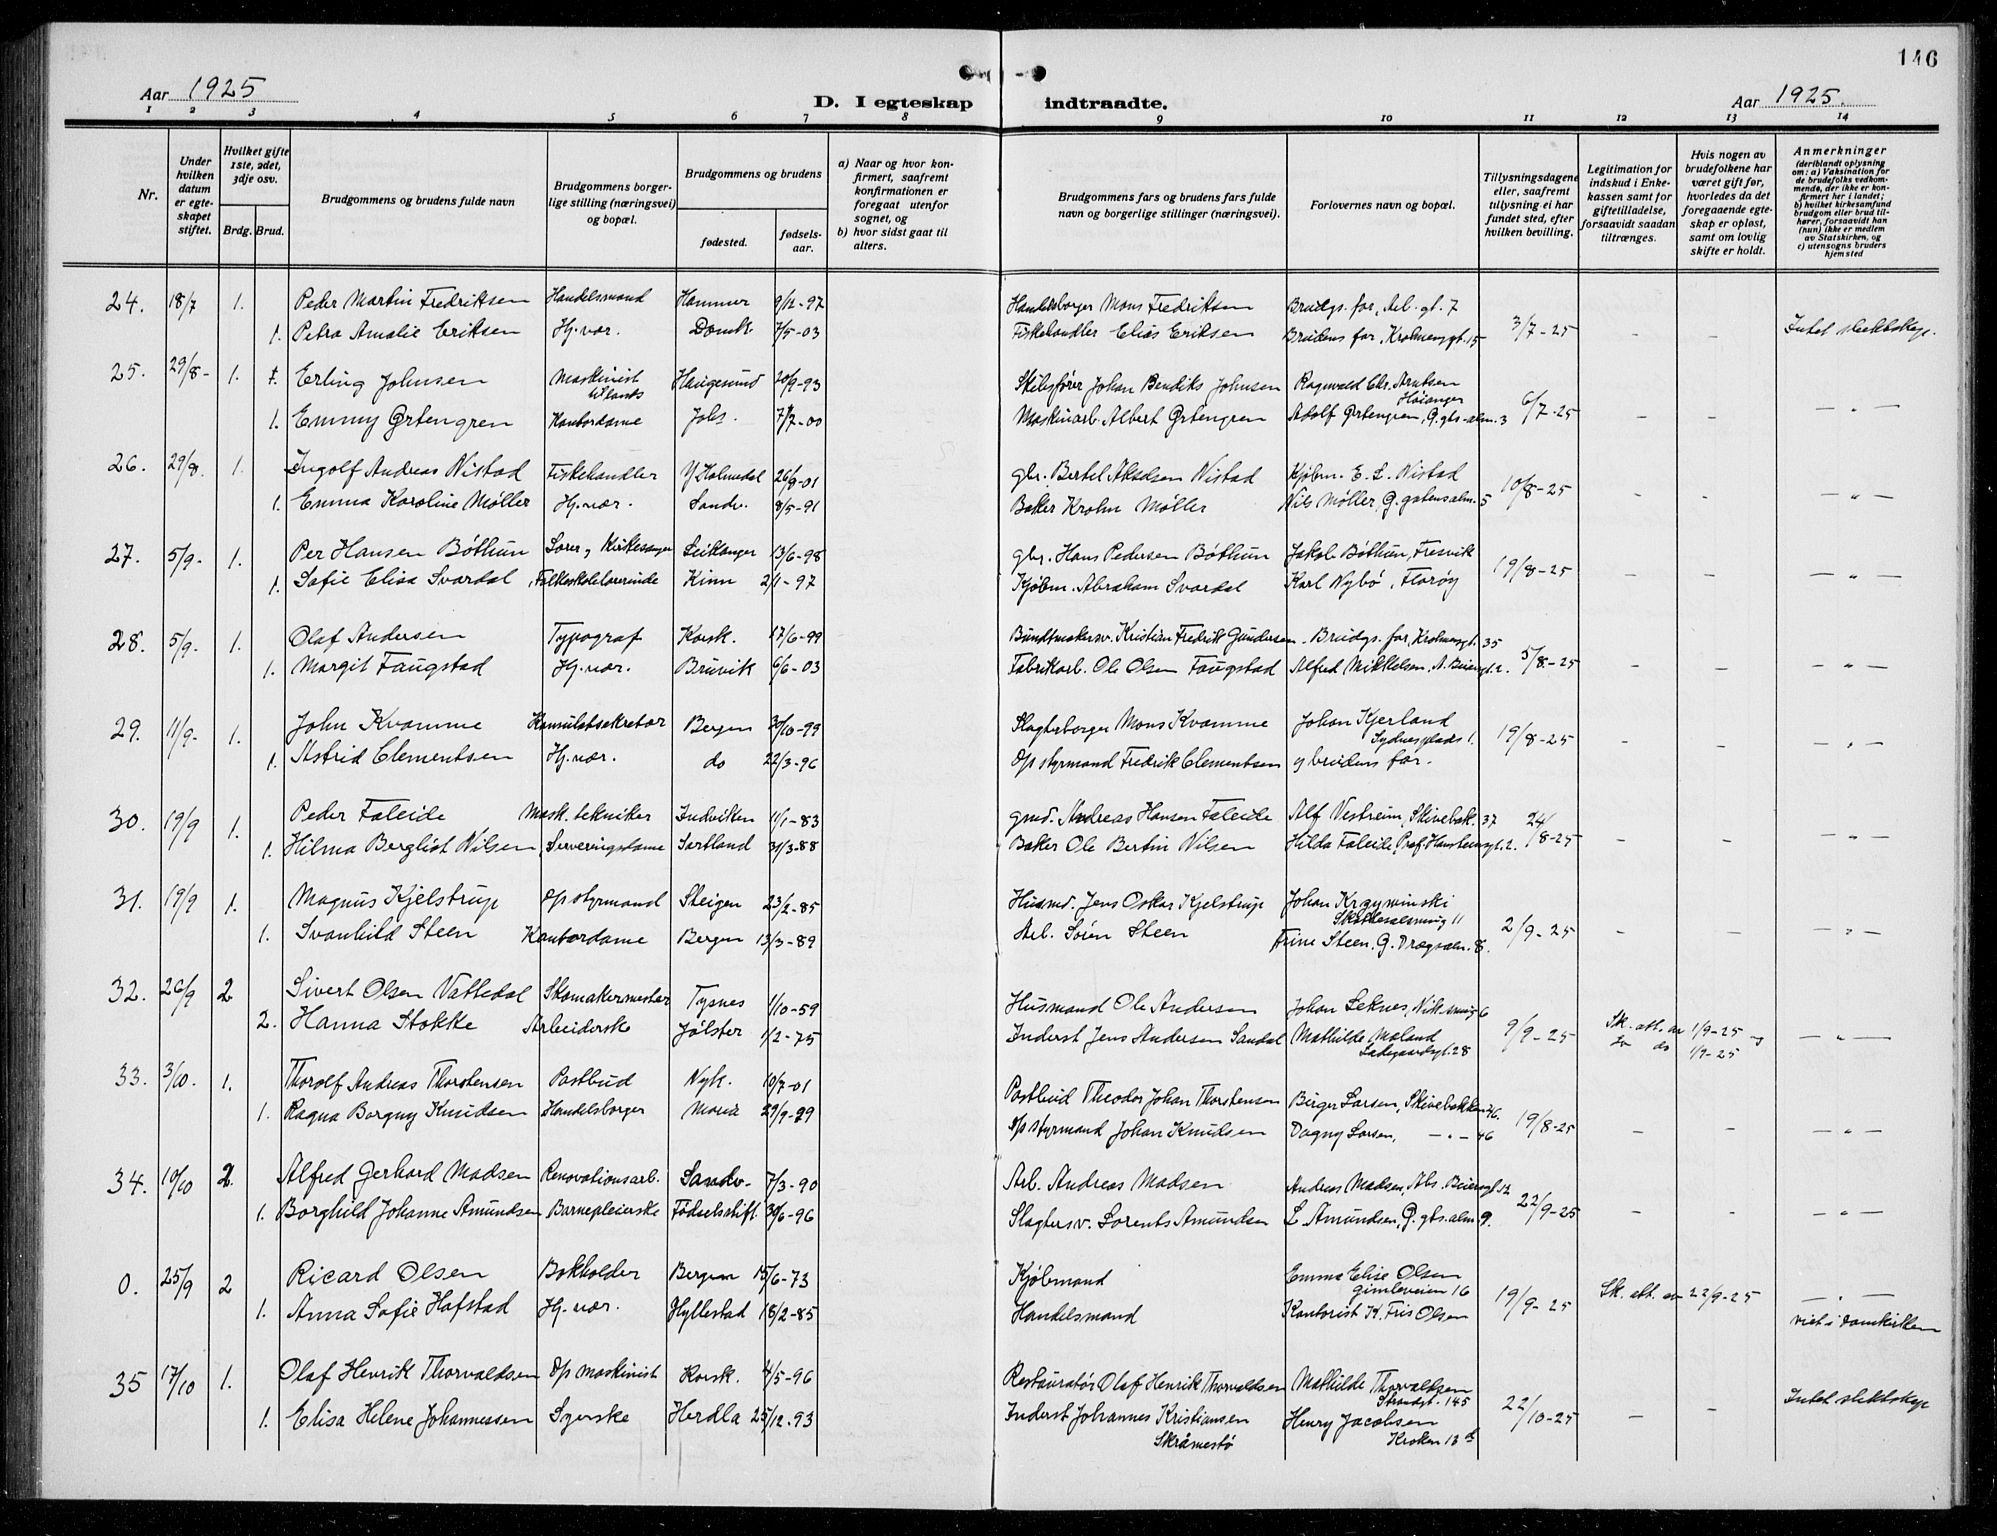 146
Aar 1925
D. I egteskap indtraadte.
Aar 1925.
1 2 3 4 5 6 7 8 9 10 11 12 13 14
Nr.
Under hvilken datum er egteskapet stiftet.
Hvilket gifte 1ste, 2det, 3dje osv.
Brdg. Brud.
Brudgommens og brudens fulde navn
Brudgommens borgerlige stilling (næringsvei) og bopæl.
Brudgommens og brudens
fødested.
fødselsaar.
a) Naar og hvor konfirmert, saafremt konfirmationen er foregaat utenfor sognet, og
b) hvor sidst gaat til alters.
Brudgommens fars og brudens fars fulde navn og borgerlige stillinger (næringsvei).
Forlovernes navn og bopæl.
Tillysningsdagene eller, saafremt tillysning ei har fundet sted, efter hvilken bevilling.
Legitimation for indskud i Enkekassen samt for giftetilladelse, forsaavidt saadan tiltrænges.
Hvis nogen av brudefolkene har været gift før, hvorledes da det foregaaende egteskap er opløst, samt om lovlig skifte er holdt.
Anmerkninger
(deriblandt oplysning om: a) Vaksination for de brudefolks vedkommende, der ikke er konfirmert her i landet; b) hvilket kirkesamfund brudgom eller brud tilhører, forsaavidt han (hun) ikke er medlem av Statskirken, og c) utensogns bruders hjemsted
24. 18/7 1. Peder Martin Fredriksen Handelsmand Hammer 9/12-97 Handelsborger Mons Fredriksen Brudgs. far, Arb. gt. 7 3/7-25 - - Intet slektskap.
1. Petra Amalie Eriksen Hj. vær. Domk. 7/5-03 Fiskehandler Elias Eriksen Brudens far, Krohnengt. 15
25. 29/8- 1. Erling Johnsen Maskinist Haugesund 20/9-93 Skibsfører Johan Bendiks Johnsen Ragnvald Chr. Arntsen Høianger 6/7-25 - - — " —
1. Emmy Ørtengren Kontordame Johs. 7/7-00 Maskinarb. Albert Ørtengren Adolf Ørtengren, G. gts-alm. 3
26. 29/8. 1. Ingolf Andreas Nistad Fiskehandler Y. Holmedal 26/8-01 gbr. Bertel Nistad Kjøbm. E. L. Nistad 10/8-25 - - — " —
1. Emma Karoline Møller Hj. vær. Sandv. 8/5-91 Baker Krohn Møller Nils Møller, G. gatensalm. 5
27. 5/9- 1. Per Hansen Bøthun Lærer og Kirkesanger Leikanger 13/6-98 gbr. Hans Pedersen Bøthun Jakob Bøthun, Fresvik 19/8-25 - - — " —
1. Sofie Elisa Svardal, Folkeskolelærerinde Kinn 2/1-97 Kjøbm. Abraham Svardal Karl Nybø, Florøy
28. 5/9. 1. Olaf Andersen Typograf Korsk. 17/6-99 Bundtmakersv. Kristian Fredrik Gundersen Brudgs. far, Krohnengt. 35 5/8-25 - - — " —
1. Margit Faugstad Hj. vær. Bruvik 6/6-03 Fabrikarb. Ole Olsen Faugstad Alfred Mikkelsen, A. Beiersgt. 2.
29. 11/9- 1. John Kvamme Konsulatsekretær Bergen 30/10-99 Slagterborger Mons Kvamme Johan Kjerland Sydnesplads 1. 19/8-25 - - — " —
1. Astrid Clementsen Hj. vær. do 22/3-96 D/p styrmand Fredrik Clementsen og brudens far.
30. 19/9 1. Peder Faleide Mask. tekniker Indviken 11/1-83 gmd. Andreas Hansen Faleide Alf Vestreim, Skivebak. 37 24/8-25 - - — " —
1. Hilma Bergliot Nilsen, Serveringsdame Sortland 31/3-88 Baker Ole Bertin Nilsen Hilda Faleide, Prof. Hansteensgt. 2.
31. 19/9 1. Magnus Kjelstrup D/p styrmand Steigen 23/2-85 Husmd. Jens Oskar Kjelstrup Johan Krzywinski 11 2/9-25 - - — " —
1. Svanhild Steen Kontordame Bergen 13/3-89 Arb. Søren Steen Trine Steen, G. Drægsalm. 8.
32. 26/9 2 Sivert Olsen Vattedal Skomakermester Tysnes 1/10-59 Husmand Ole Andersen Johan Leknes, Nik. smug 6 9/9-25 Sk. att. av 1/9-25 og — " —
2. Hanna Stokke Arbeiderske Jølster 1/2-75 Inderst Jens Andersen Sandal Mathilde Maland Ladegaardsgt. 28 do 1/9-25
33. 3/10. 1. Thorolf Andreas Thorstensen Postbud Nyk. 10/7-01 Postbud Theodor Johan Thorstensen Birger Larsen, Skivebakken 46. 19/8-25 - - — " —
1. Ragna Borgny Knudsen Handelsborger Maria 29/9-99 D/p styrmand Johan Knudsen Dagny Larsen, — " — 46
34. 10/10 2. Alfred Gerhard Madsen Renovationsarb. Sandv. 7/3-90 Arb. Andreas Madsen Andreas Madsen, Abs. Beiersgt 12 22/9-25 - - — " —
1. Borghild Johanne Amundsen Barnepleierske Fødselsstift. 30/6-96 Slagtersv. Lorents Amundsen L Amundsen, G. gts. alm. 9.
0. 25/9 2 Ricard Olsen Bokholder Bergen 15/6-73 Kjøbmand Emma Elise Olsen Gimleveien 16 19/9-25 Sk. att. av 22/9-25 — " —
1. Anna Sofie Hafstad Hj. vær. Hyllestad 18/2-85 Handelsmand Kontorist K. Friis Olsen viet i Domkirken
35 17/10 1. Olaf Henrik Thorvaldsen D/p maskinist Korsk. 4/5-96 Restauratør Olaf Henrik Thorvaldsen Mathilde Thorvaldsen Strandgt. 145 22/10-25 - - Intet slektskap
1. Elisa Helene Johannessen Syerske Herdla 25/12-93 Inderst Johannes Kristiansen Skråmestø Henry Jacobsen Kroken 13